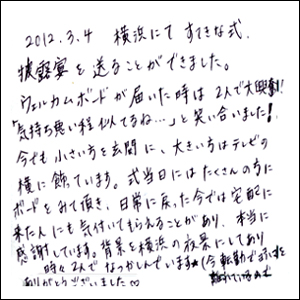 2012.3.4 横浜にて すてきな式、
披露宴を送ることができました。
ウェルカムボードが届いた時は 2人で大興奮!
「気持ち悪い程似てるね…」と笑い合いました!
今でも小さい方を玄関に、大きい方はテレビの
横に飾ています。式当日にはたくさんの方に
ボードをみて頂き、日常に戻った今では宅配に
来た人にも気付いてもらえることがあり、本当に
感謝しています。背景を横浜の夜景にしてあり
時々2人でなつかしんでいます★(今転勤で
離れているので
ありがとうございました♡